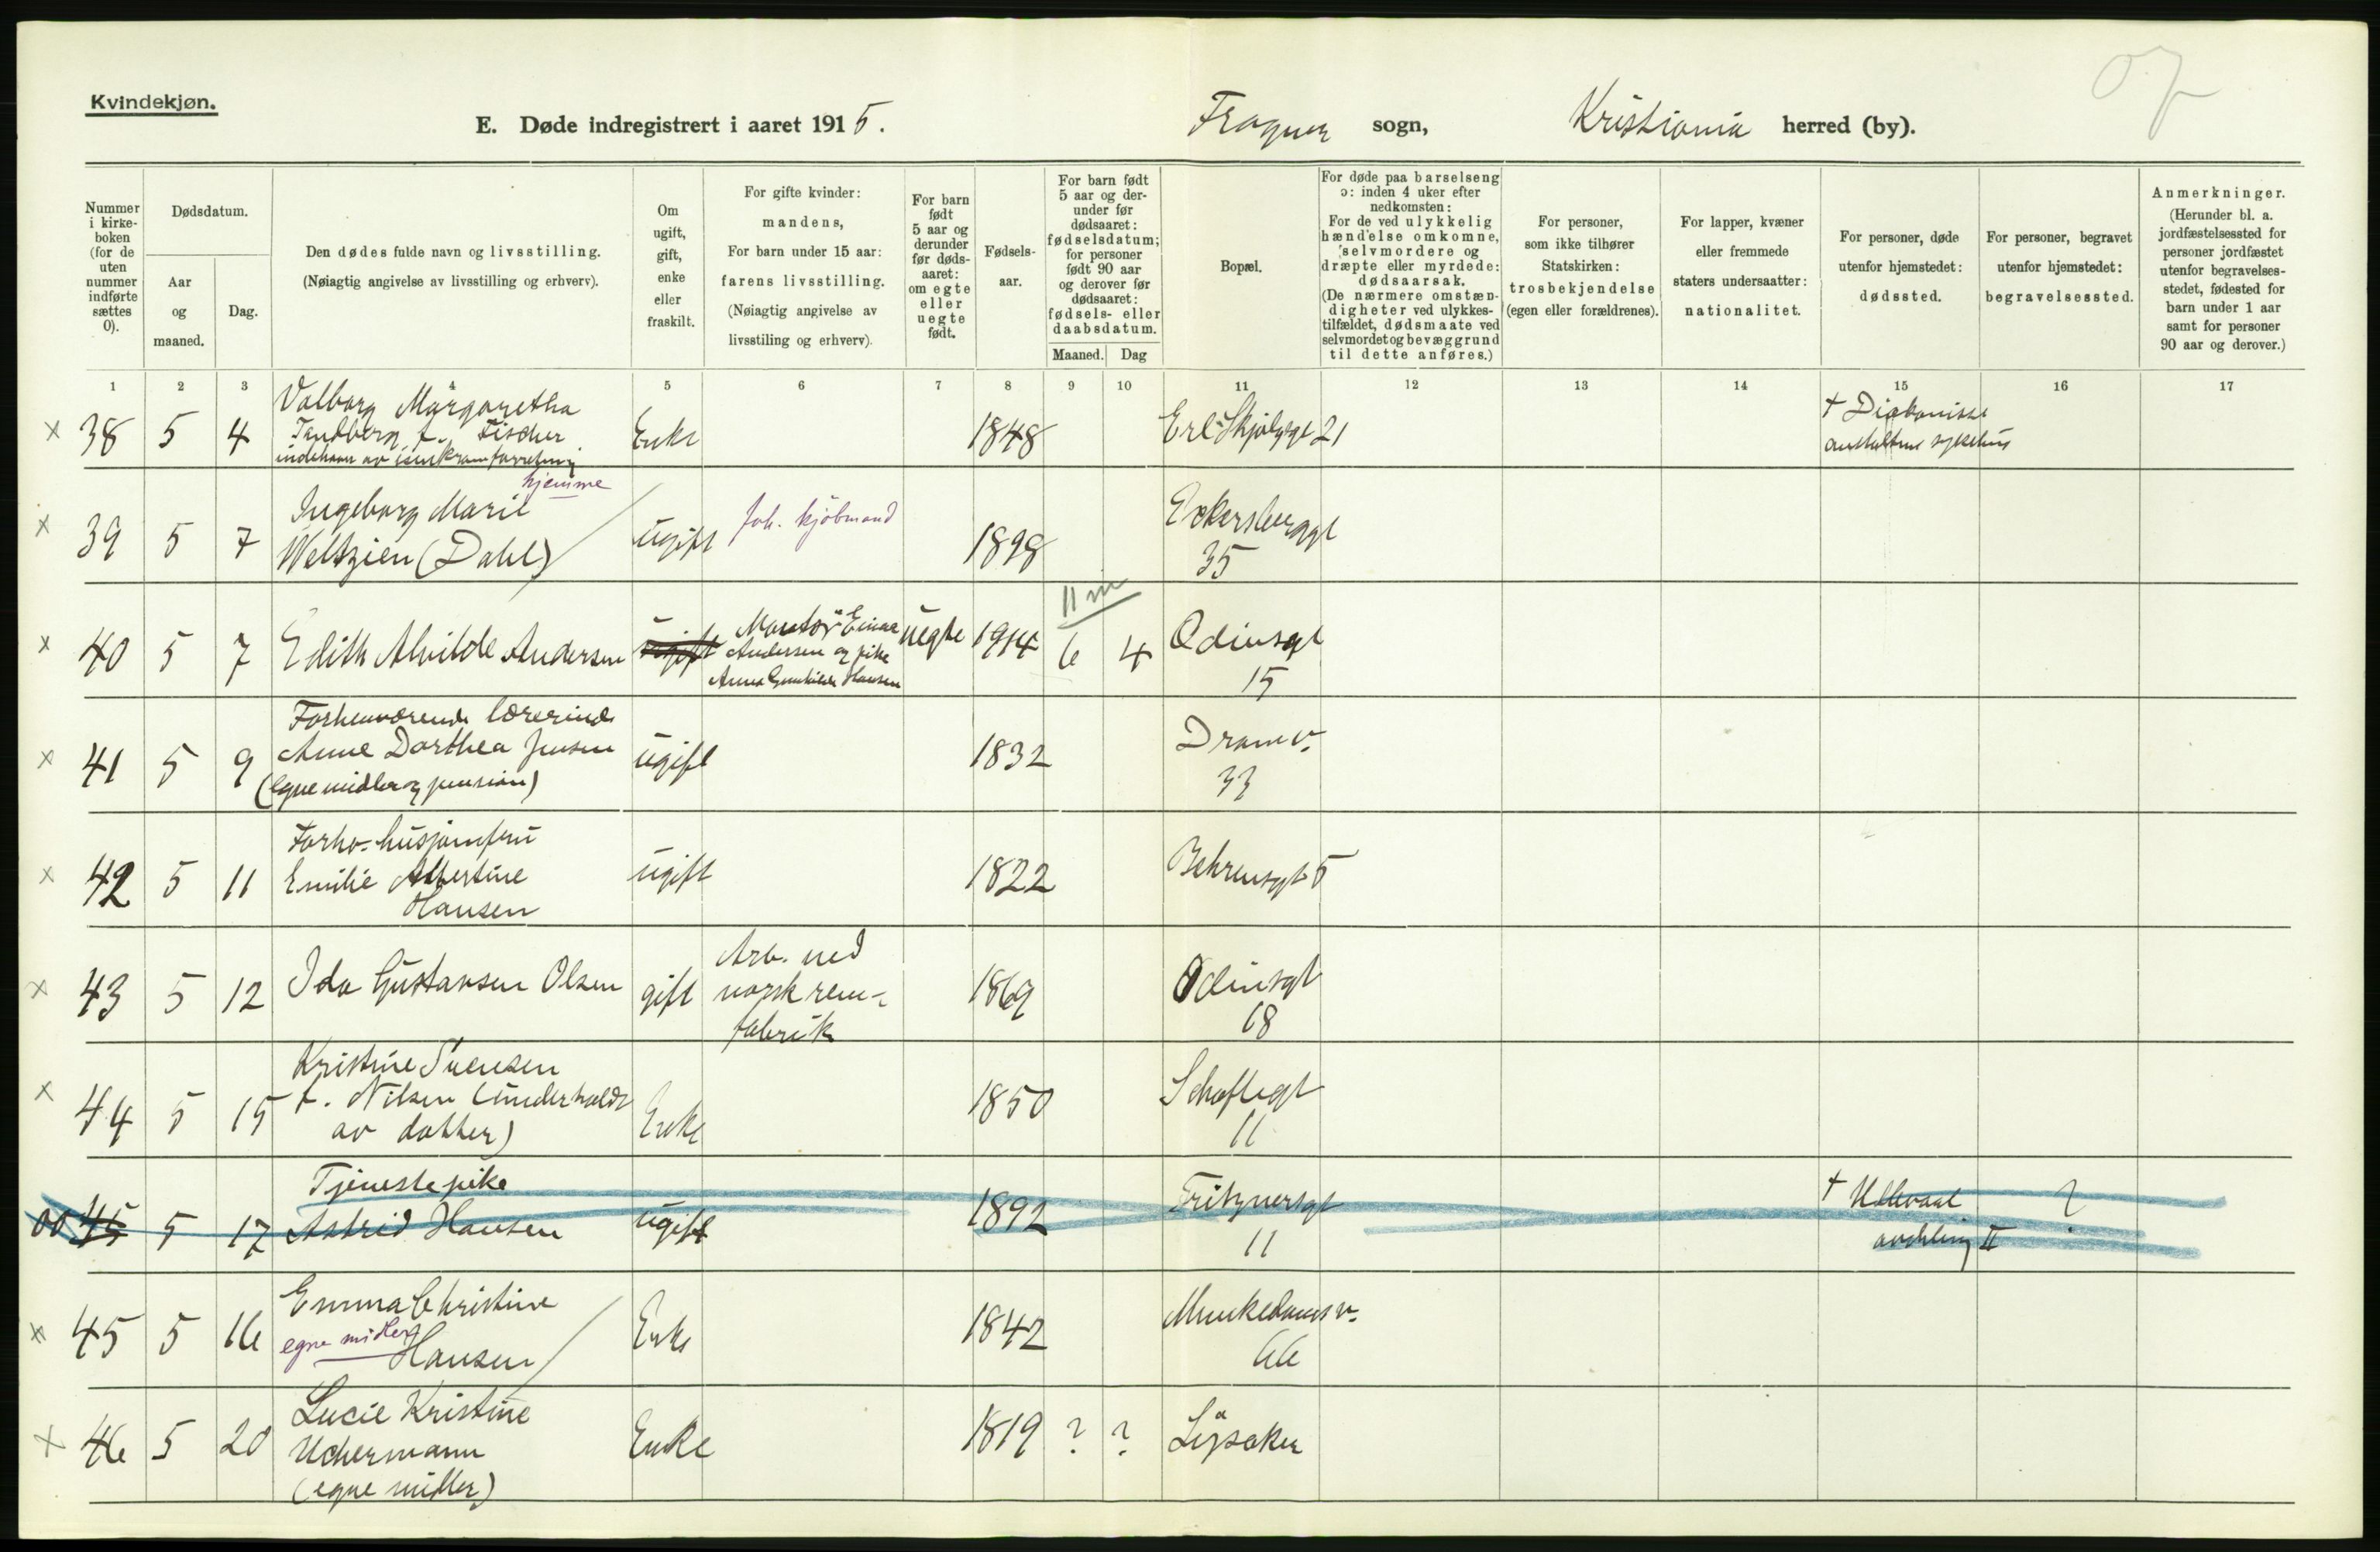 Kvindekjøn.
E. Døde indregistrert i aaret 1915. Frogner sogn, Kristiania herred (by).
Nummer i kirke-boken (for de uten nummer indførte sættes 0).
Dødsdatum.
Aar og maaned.
Dag.
Den dødes fulde navn og livsstilling.
(Nøiagtig angivelse av livsstilling og erhverv).
Om ugift, gift, enke eller fraskilt.
For gifte kvinder: mandens,
For barn under 15 aar: farens livsstilling.
(Nøiagtig angivelse av livsstiling og erhverv).
For barn født 5 aar og derunder før døds-aaret: om egte eller uegte født.
Fødsels-aar.
For barn født 5 aar og der-under før dødsaaret: fødselsdatum; for personer født 90 aar og derover før dødsaaret: fødsels- eller daabsdatum.
Maaned. Dag
Bopæl.
For døde paa barselseng ɔ: inden 4 uker efter nedkomsten:
For de ved ulykkelig hændelse omkomne, selvmordere og dræpte eller myrdede: dødsaarsak.
(De nærmere omstæn-digheter ved ulykkes-tilfældet, dødsmaate ved selvmordet og bevæggrund til dette anføres.)
For personer, som ikke tilhører Statskirken: trosbekjendelse (egen eller forældrenes).
For lapper, kvæner eller fremmede staters undersaatter: nationalitet.
For personer, døde utenfor hjemstedet: dødssted.
For personer, begravet utenfor hjemstedet: begravelsessted.
Anmerkninger.
(Herunder bl. a. jordfæstelsessted for personer jordfæstet utenfor begravelses-stedet, fødested for barn under 1 aar samt for personer 90 aar og derover.)
1 2 3 4 5 6 7 8 9 10 11 12 13 14 15 16 17
x 38 5 4 Valborg Margaretha
Tandberg f. Fischer Enke 1848 Erl. Skjalgsgt 21 † Diakonisse
indehaver av isenkramforretning anstaltens sykehus
hjemme
x 39 5 7 Ingeborg Marie
Weltzien (Dahl) ugift fah. kjøbmand 1898 Eckersberggt
35
11 m
x 40 5 7 Edith Alvilde Andersen ugift Montør Einar
Andersen og pike
Anna Gunhilde Hansen uegte 1914 6 4 Odinsgt
15
x 41 5 9 Forhenværende lærerinde
Anne Dorthea Jensen ugift 1832 Dramv.
(egne midler og pension) 33
x 42 5 11 Forhv. husjomfru
Emilie Albertine ugift 1822 Behrensgt 5
Hansen
x 43 5 12 Ida Gustavsen Olsen gift Arb. ved
norsk rem-
fabrik 1869 Odinsgt
18
x 44 5 15 Kristine Svensen
f. Nilsen (underholdt
av datter) Enke 1850 Schaftegt
11
00 45 5 17 Tjenestepike
Astrid Hansen ugift 1892 Fritznersgt
11 † Ullevaal
avdeling II ?
x 45 5 16 Emma Christine
egne midler
Hansen Enke 1842 Munkedamsv.
66
x 46 5 20 Lucie Kristine
Uchermann
(egne midler) Enke 1819 ? ? Lysaker